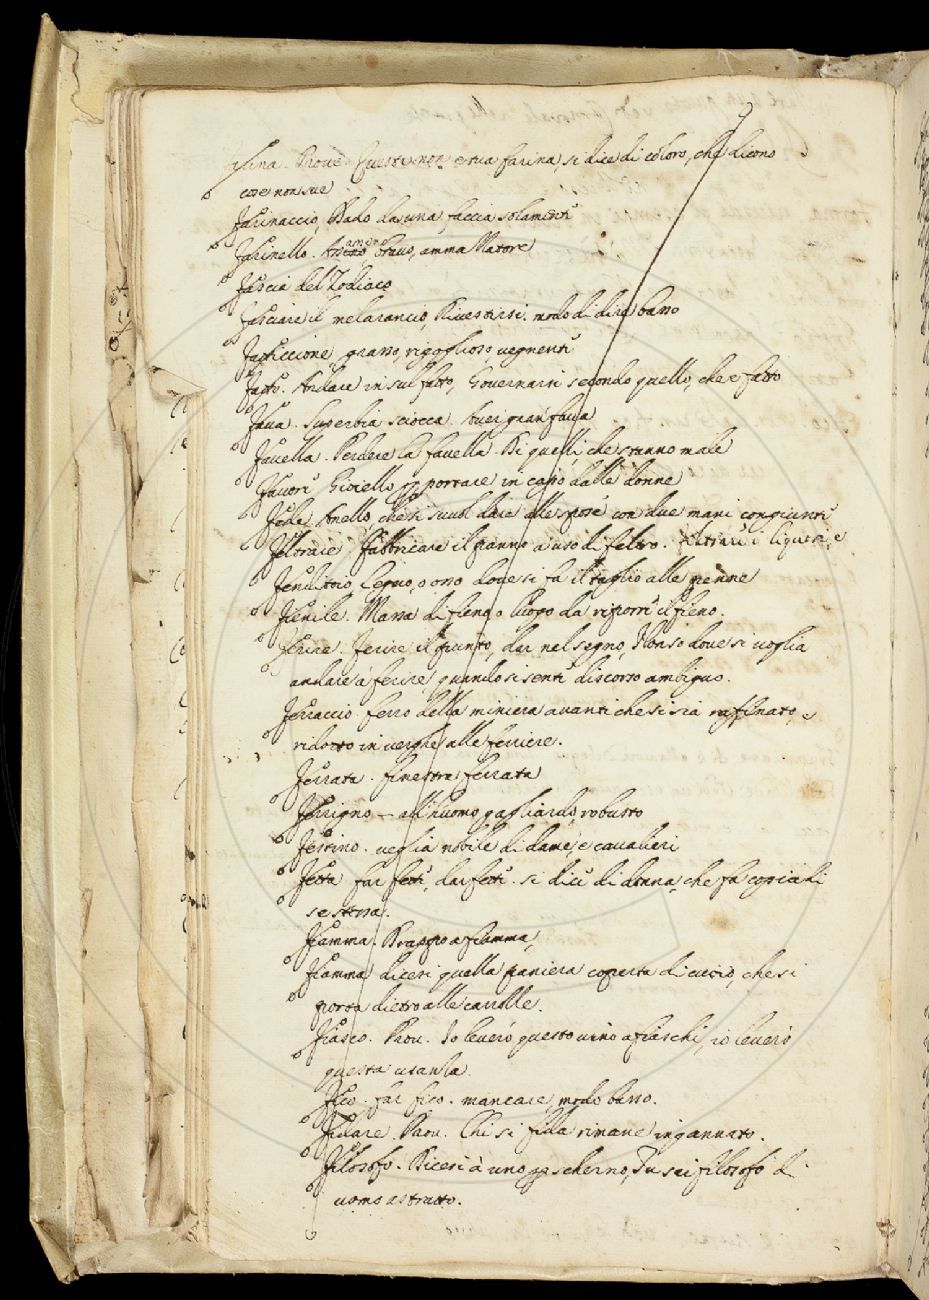 farina. Prove. Questa non è tua farina, si dice di coloro, che dicono
cose non sue
Farinaccio, Dado da una faccia solamente
Farinello. ameno bravo, ammazzatore
Fascia del Zodiaco
Fasciare il melarancio, Rivestirsi. modo di dire basso
Fatticcione, grasso, rigoglioso, vegnente
Fatto. Andare in sul fatto, Governarsi secondo quello, che è fatto
Fava. Superbia sciocca. Aver gran fava
Favella. Perdere la favella. Di quelli, che stanno male
Favori Gioiello p portare in capo dalle donne
Fede Anello, che si suol dare alle spose con due mani congiunte
Feltrare Fabbricare il panno a uso di feltro.
Fenditoio, Legno, o osso dove si fa il taglio alle penne
Fienile. Massa di fieno o luogo da riporre il fieno.
Ferire. Ferire il punto, dar nel segno, Non so dove si voglia
andare à ferire, quando si sente discorso ambiguo.
Ferraccio. ferro della miniera avanti che si sia raffinato, e
ridotto in verghe alle ferriere.
Ferrata. finestra ferrata
Ferrigno – all'huomo gagliardo, robusto
Festino. veglia nobile di dame, e cavalieri
Festa far feste, dar feste. si dice di donna, che fa copia di
se stessa.
Fiamma. Drappo a fiamma,
Fiamma dicesi quella paniera coperta di cuoio, che si
porta dietro alle carrolle.
Fiasco. Prov. Io leverò questo vino a fiaschi, io leverò
questa usanza.
Fico. far fico. mancare, modo basso.
Fidare. Prov. Chi si fida rimane ingannato.
Filosofo. Dicesi à uno p scherno, Tu sei filosofo di
uomo astratto.